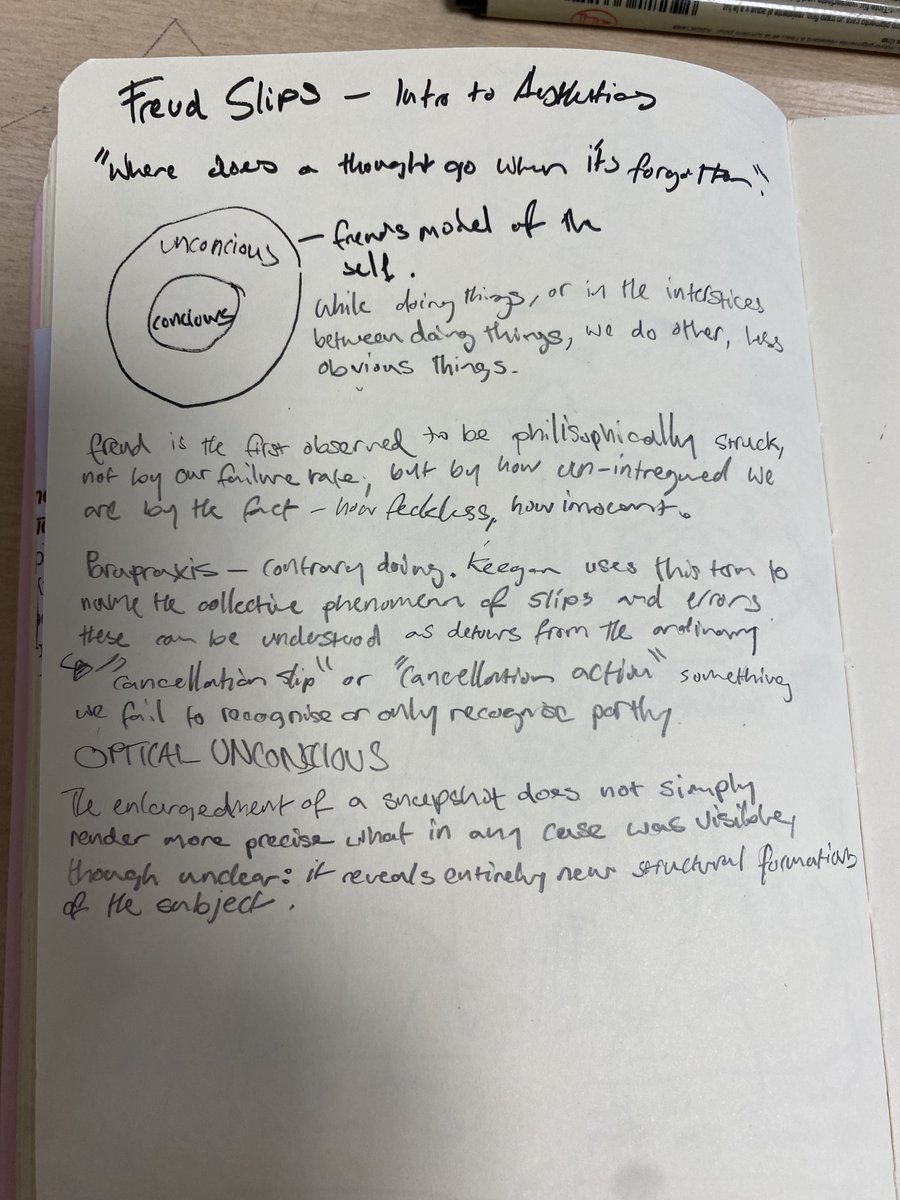 Freud Slips – Intro to Aesthetics
"Where does a thought go when it's forgotten".
unconcious
concious
– freud's model of the
self.
While doing things, or in the interstices
between doing things, we do other, less
obvious things.
freud is the first observed to be philisophically struck,
not by our failure rate, but by how un-intregued we
are by the fact – how feckless, how inocent.
Parapraxis – contrary doing. Keegan uses this term to
name the collective phenomenn of slips and errors
these can be understood as detours from the ordinary
"cancellation slip" or "cancellation action" something
we fail to recognise or only recognise partly
OPTICAL UNCONSCIOUS
The enlargedment of a snapshot does not simply
render more precise what in any case was visibley
though unclear: it reveals entirely new structural formations
of the subject.